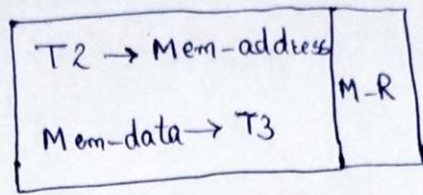 T2 → Mem-address
M-R
Mem-data → T3